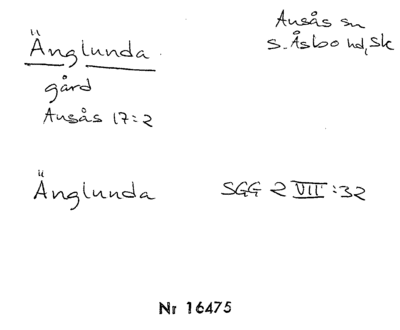 Änglunda
Ausås sn
S. Åsbo hd, Sk
gård
Ausås 17:2
Änglunda SGG 2 VII:32
Nr 16475